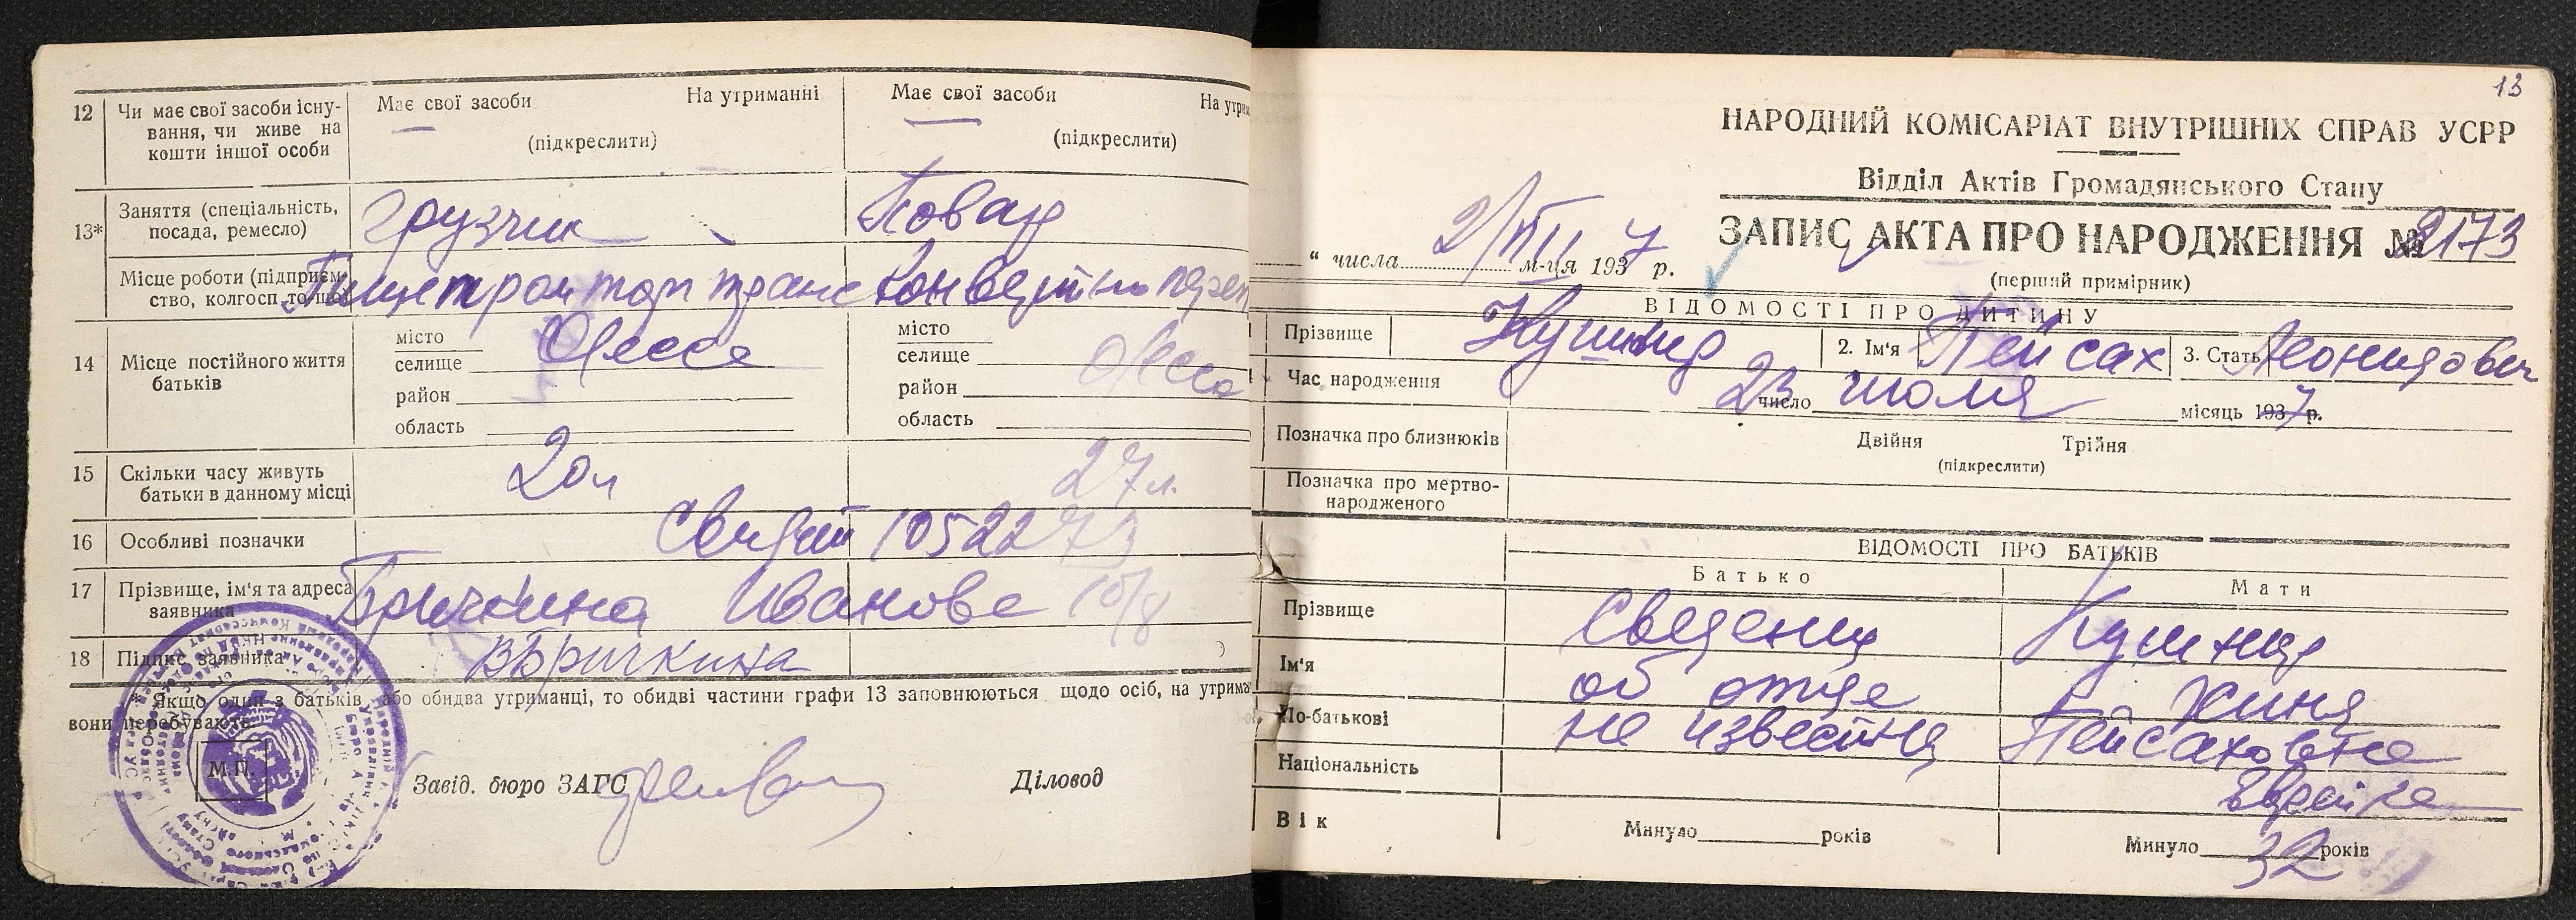 12 Чи має свої засоби існу-
вання, чи живе на
кошти іншої особи
Має свої засоби На утриманні
(підкреслити)
Має свої засоби На утрим
(підкреслити)
13* Заняття (спеціальність,
посада, ремесло)
грузчик Повар
Місце роботи (підприєм-
ство, колгосп то-що)
14 Місце постійного життя
батьків
місто Одесса
селище
район
область
місто Одесса
селище
район
область
15 Скільки часу живуть
батьки в данному місці
20л 27л.
16 Особливі позначки
1052273
17 Прізвище, ім'я та адреса
заявника
Бричкина Иванова 10/8
18 Підпис заявника
ВБричкина
* Якщо один з батьків, або обидва утриманці, то обидві частини графи 13 заповнюються щодо осіб, на утрима
вони перебувають.
М.П.
Завід. бюро ЗАГС Діловод
13
НАРОДНИЙ КОМІСАРІАТ ВНУТРІШНІХ СПРАВ УСРР
Відділ Актів Громадянського Стану
ЗАПИС АКТА ПРО НАРОДЖЕННЯ № 2173
“ числа 2/VIII м-ця 1937 р.
(перший примірник)
ВІДОМОСТІ ПРО ДИТИНУ
Прізвище Кушнир 2. Ім'я Пейсах 3. Стать Леонидович
Час народження 23 число июля місяць 1937р.
Позначка про близнюків Двійня Трійня
(підкреслити)
Позначка про мертво-
народженого
ВІДОМОСТІ ПРО БАТЬКІВ
Батько Мати
Прізвище Сведения Кушнир
Ім'я об отце Хиня
По-батькові не известны Пейсаховна
Національність Еврейка
Вік Минуло років Минуло 32 років